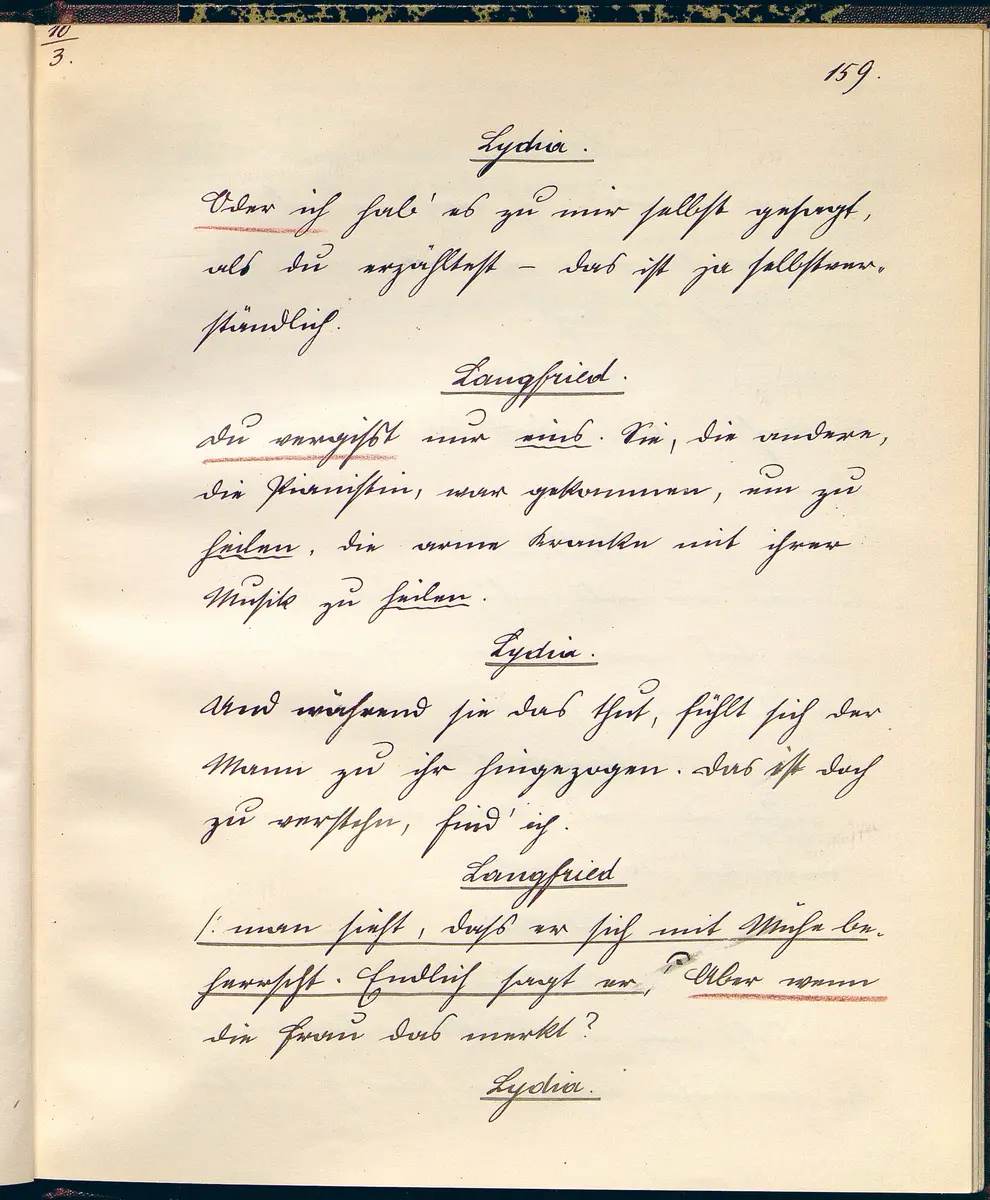 10
3.
159.
Lydia.
Oder ich hab' es zu mir selbst gesagt,
als du erzähltest – das ist ja selbstver-
ständlich.
Langfried.
Du vergißt nur eins. Sie, die andere,
die Pianistin, war gekommen, um zu
heilen, die arme Kranke mit ihrer
Musik zu heilen.
Lydia.
Und während sie das thut, fühlt sich der
Mann zu ihr hingezogen. Das ist doch
zu verstehn, find' ich.
Langfried
/: man sieht, daß er sich mit Mühe be-
herrscht. Endlich sagt er, Aber wenn
die Frau das merkt?
Lydia.